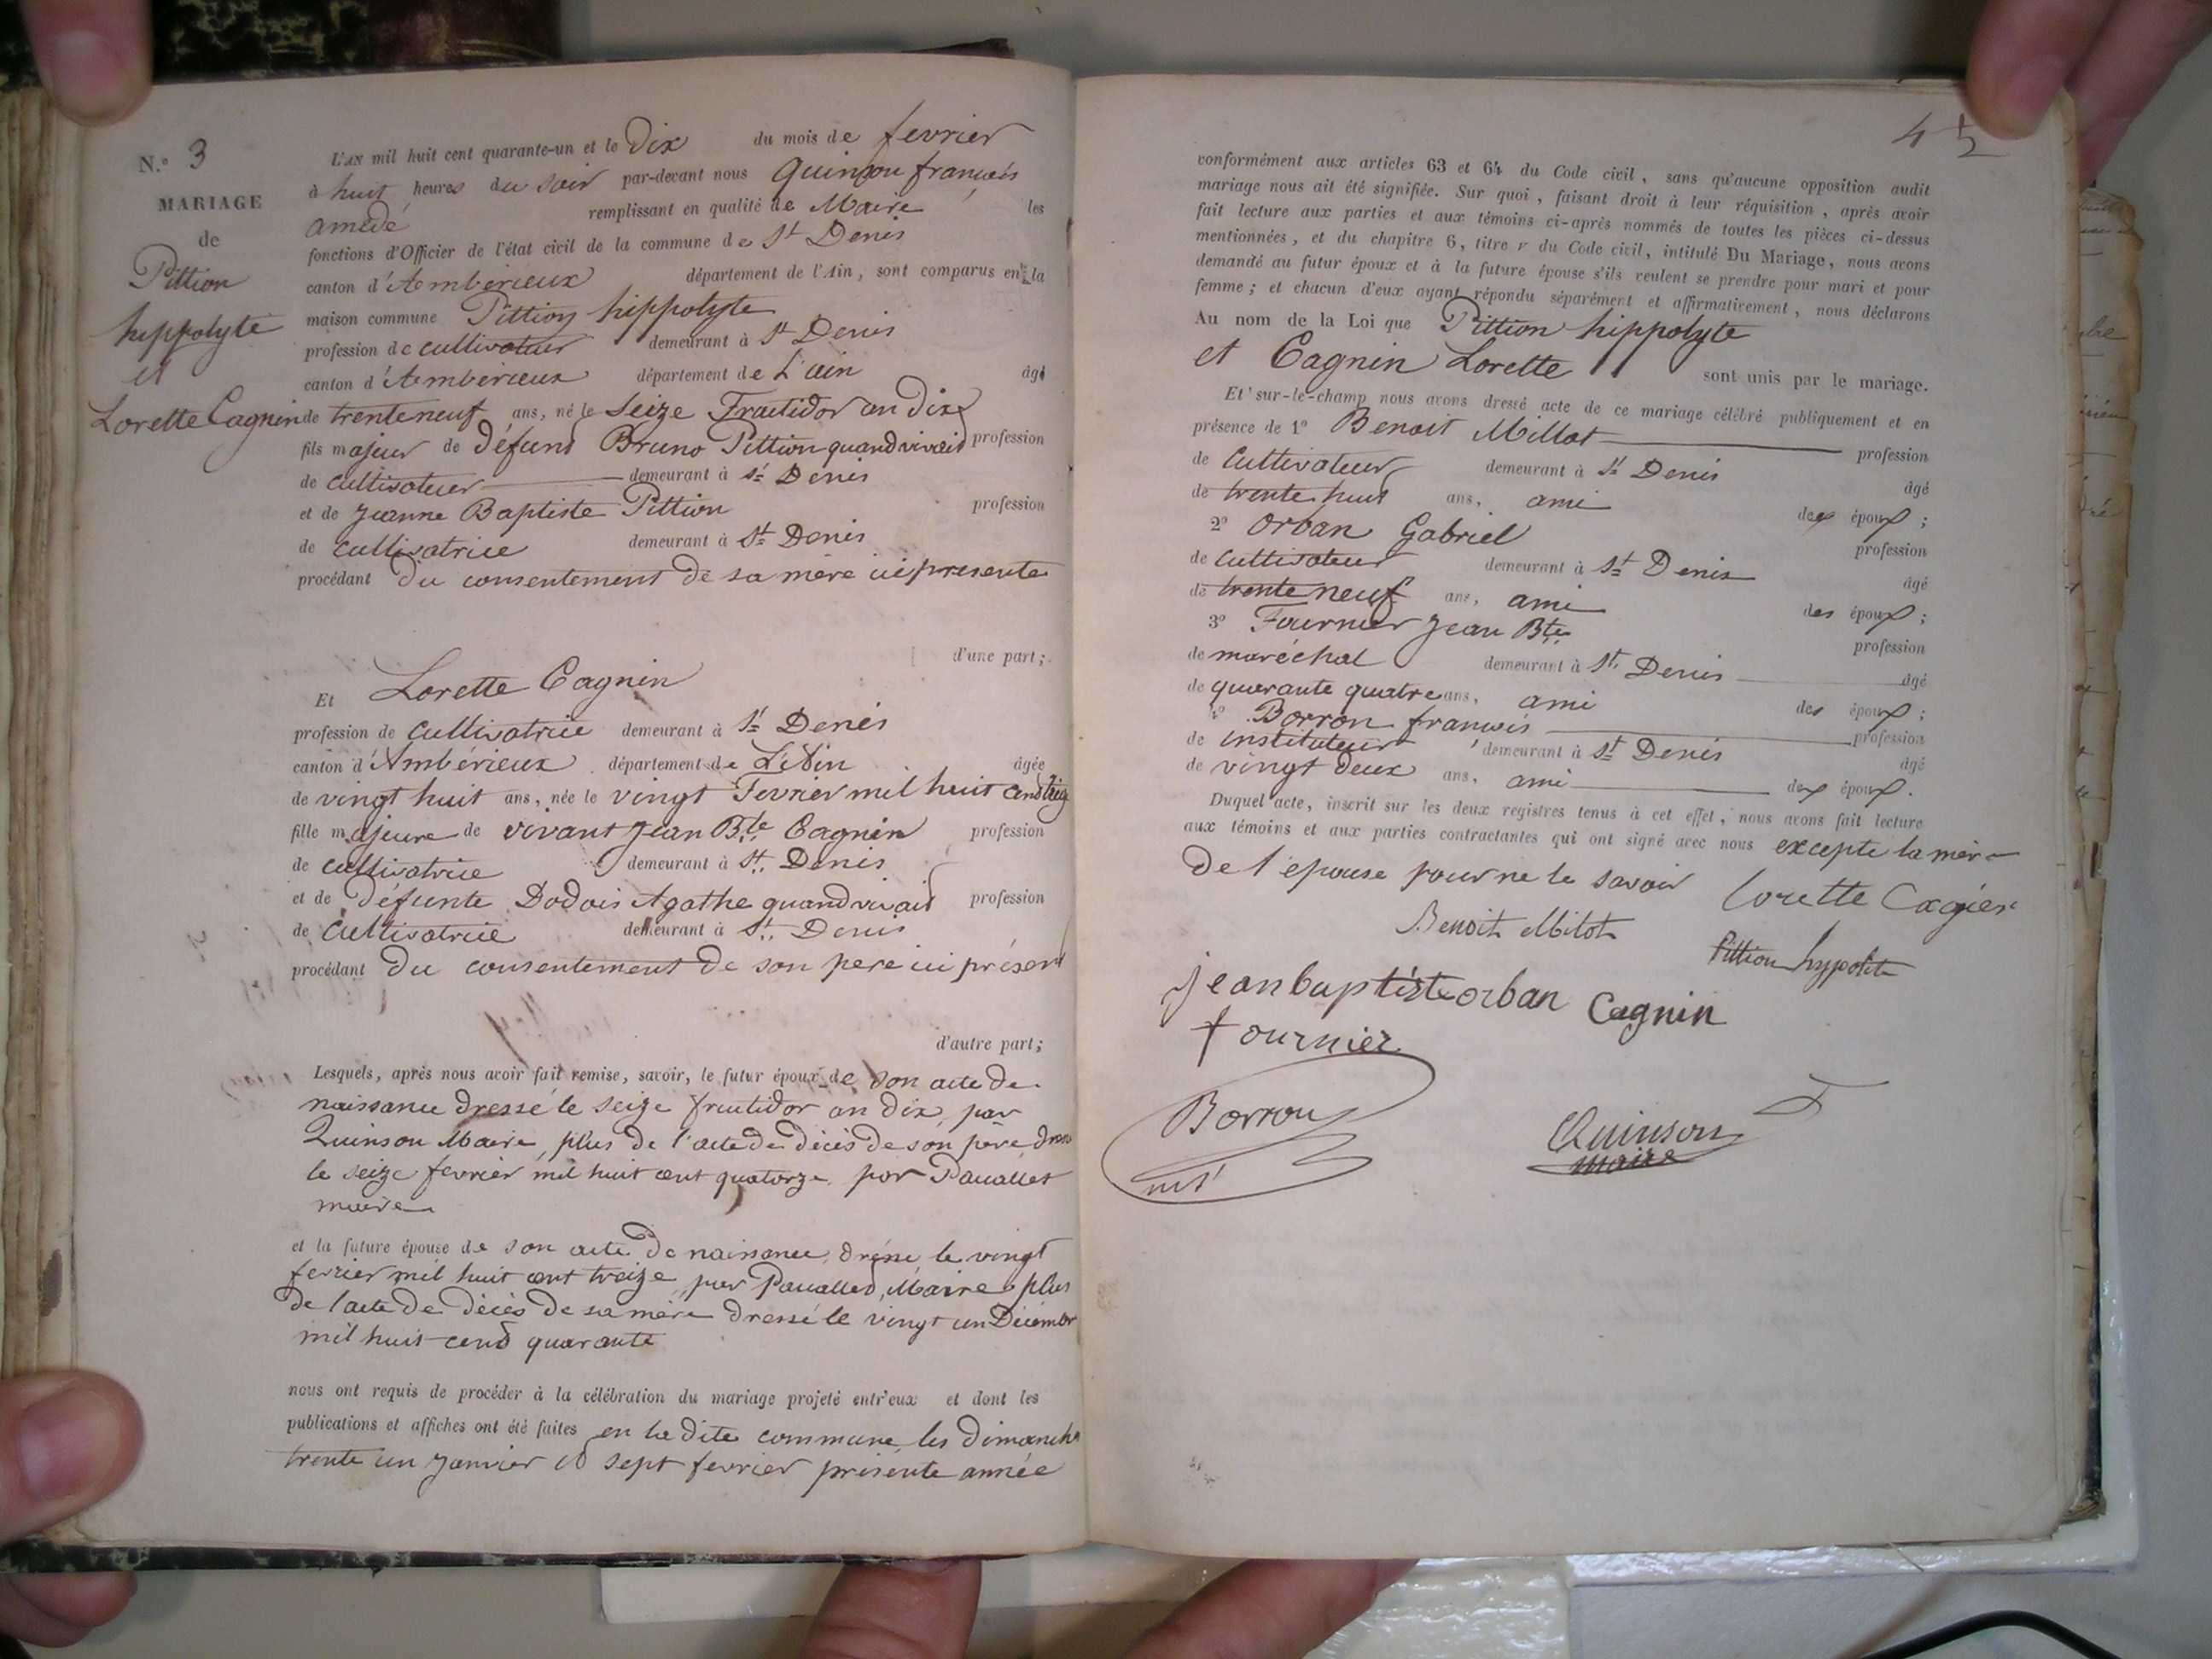 N.º 3
MARIAGE
de
Pittion
hippolyte
et
Lorette Cagnin
L'AN mil huit cent quarante-un et le Dix du mois de fevrier
à huit heures du soir par-devant nous Quinson françois
amédé remplissant en qualité de Maire les
fonctions d'Officier de l'état civil de la commune de St Denis
canton d'Ambérieux département de l'Ain, sont comparus en la
maison commune Pittion hippolyte
profession de cultivateur demeurant à St Denis
canton d'Ambérieux département de L'ain âgé
de trente neuf ans, né le Seize Fructidor an dix
fils majeur de défunt Bruno Pittion quand vivait profession
de cultivateur demeurant à St Denis
et de Jeanne Baptiste Pittion profession
de cultivatrice demeurant à St Denis
procédant du consentement de sa mère ici presente
d'une part;
Et Lorette Cagnin
profession de cultivatrice demeurant à St Denis
canton d'Ambérieux département de L'Ain âgée
de vingt huit ans, née le vingt Fevrier mil huit cent
fille majeure de vivant Jean Bte Cagnin profession
de cultivatrice demeurant à St Denis
et de Défunte Dodois Agathe quand vivait profession
de Cultivatrice demeurant à St Denis
procédant du consentement de son pere ici présent
d'autre part;
Lesquels, après nous avoir fait remise, savoir, le futur époux de son acte de
naissance dressé le seize fructidor an dix, par
Quinson Maire, plus de l'acte de décès de son père
le seize fevrier mil huit cent quatorze par Paucallet
maire
et la future épouse de son acte de naissance dréssé le vingt
fevrier mil huit cent treize par Maire, plus
de l'acte de décès de sa mère dressé le vingt un Décembr
mil huit cent quarante
nous ont requis de procéder à la célébration du mariage projeté entr'eux et dont les
publications et affiches ont été faites en la dite commune les dimanche
trente un janvier et sept fevrier présente année
4
conformément aux articles 63 et 64 du Code civil, sans qu'aucune opposition audit
mariage nous ait été signifiée. Sur quoi, faisant droit à leur réquisition, après avoir
fait lecture aux parties et aux témoins ci-après nommés de toutes les pièces ci-dessus
mentionnées, et du chapitre 6, titre v du Code civil, intitulé Du Mariage, nous avons
demandé au futur époux et à la future épouse s'ils veulent se prendre pour mari et pour
femme; et chacun d'eux ayant répondu séparément et affirmativement, nous déclarons
Au nom de la Loi que Pittion hippolyte
et Cagnin Lorette sont unis par le mariage.
Et sur-le-champ nous avons dressé acte de ce mariage célébré publiquement et en
présence de 1º Benoit Millot profession
de Cultivateur demeurant à St Denis âgé
de trente huit ans, ami des époux;
2º Orban Gabriel profession
de cultivateur demeurant à St Denis âgé
de trente neuf ans, ami des époux;
3º Fournier Jean Bte profession
de maréchal demeurant à St Denis âgé
de quarante quatre ans, ami des époux;
4º Borron françois profession
de instituteur demeurant à St Denis âgé
de vingt deux ans, ami des époux.
Duquel acte, inscrit sur les deux registres tenus à cet effet, nous avons fait lecture
aux témoins et aux parties contractantes qui ont signé avec nous excepte la mère
de l'epouse pour ne le savoir Lorette Cagien
Benoit Milot
Pittion hypolite
jean baptiste orban Cagnin
fournier
Borron
inst
Quinson
maire